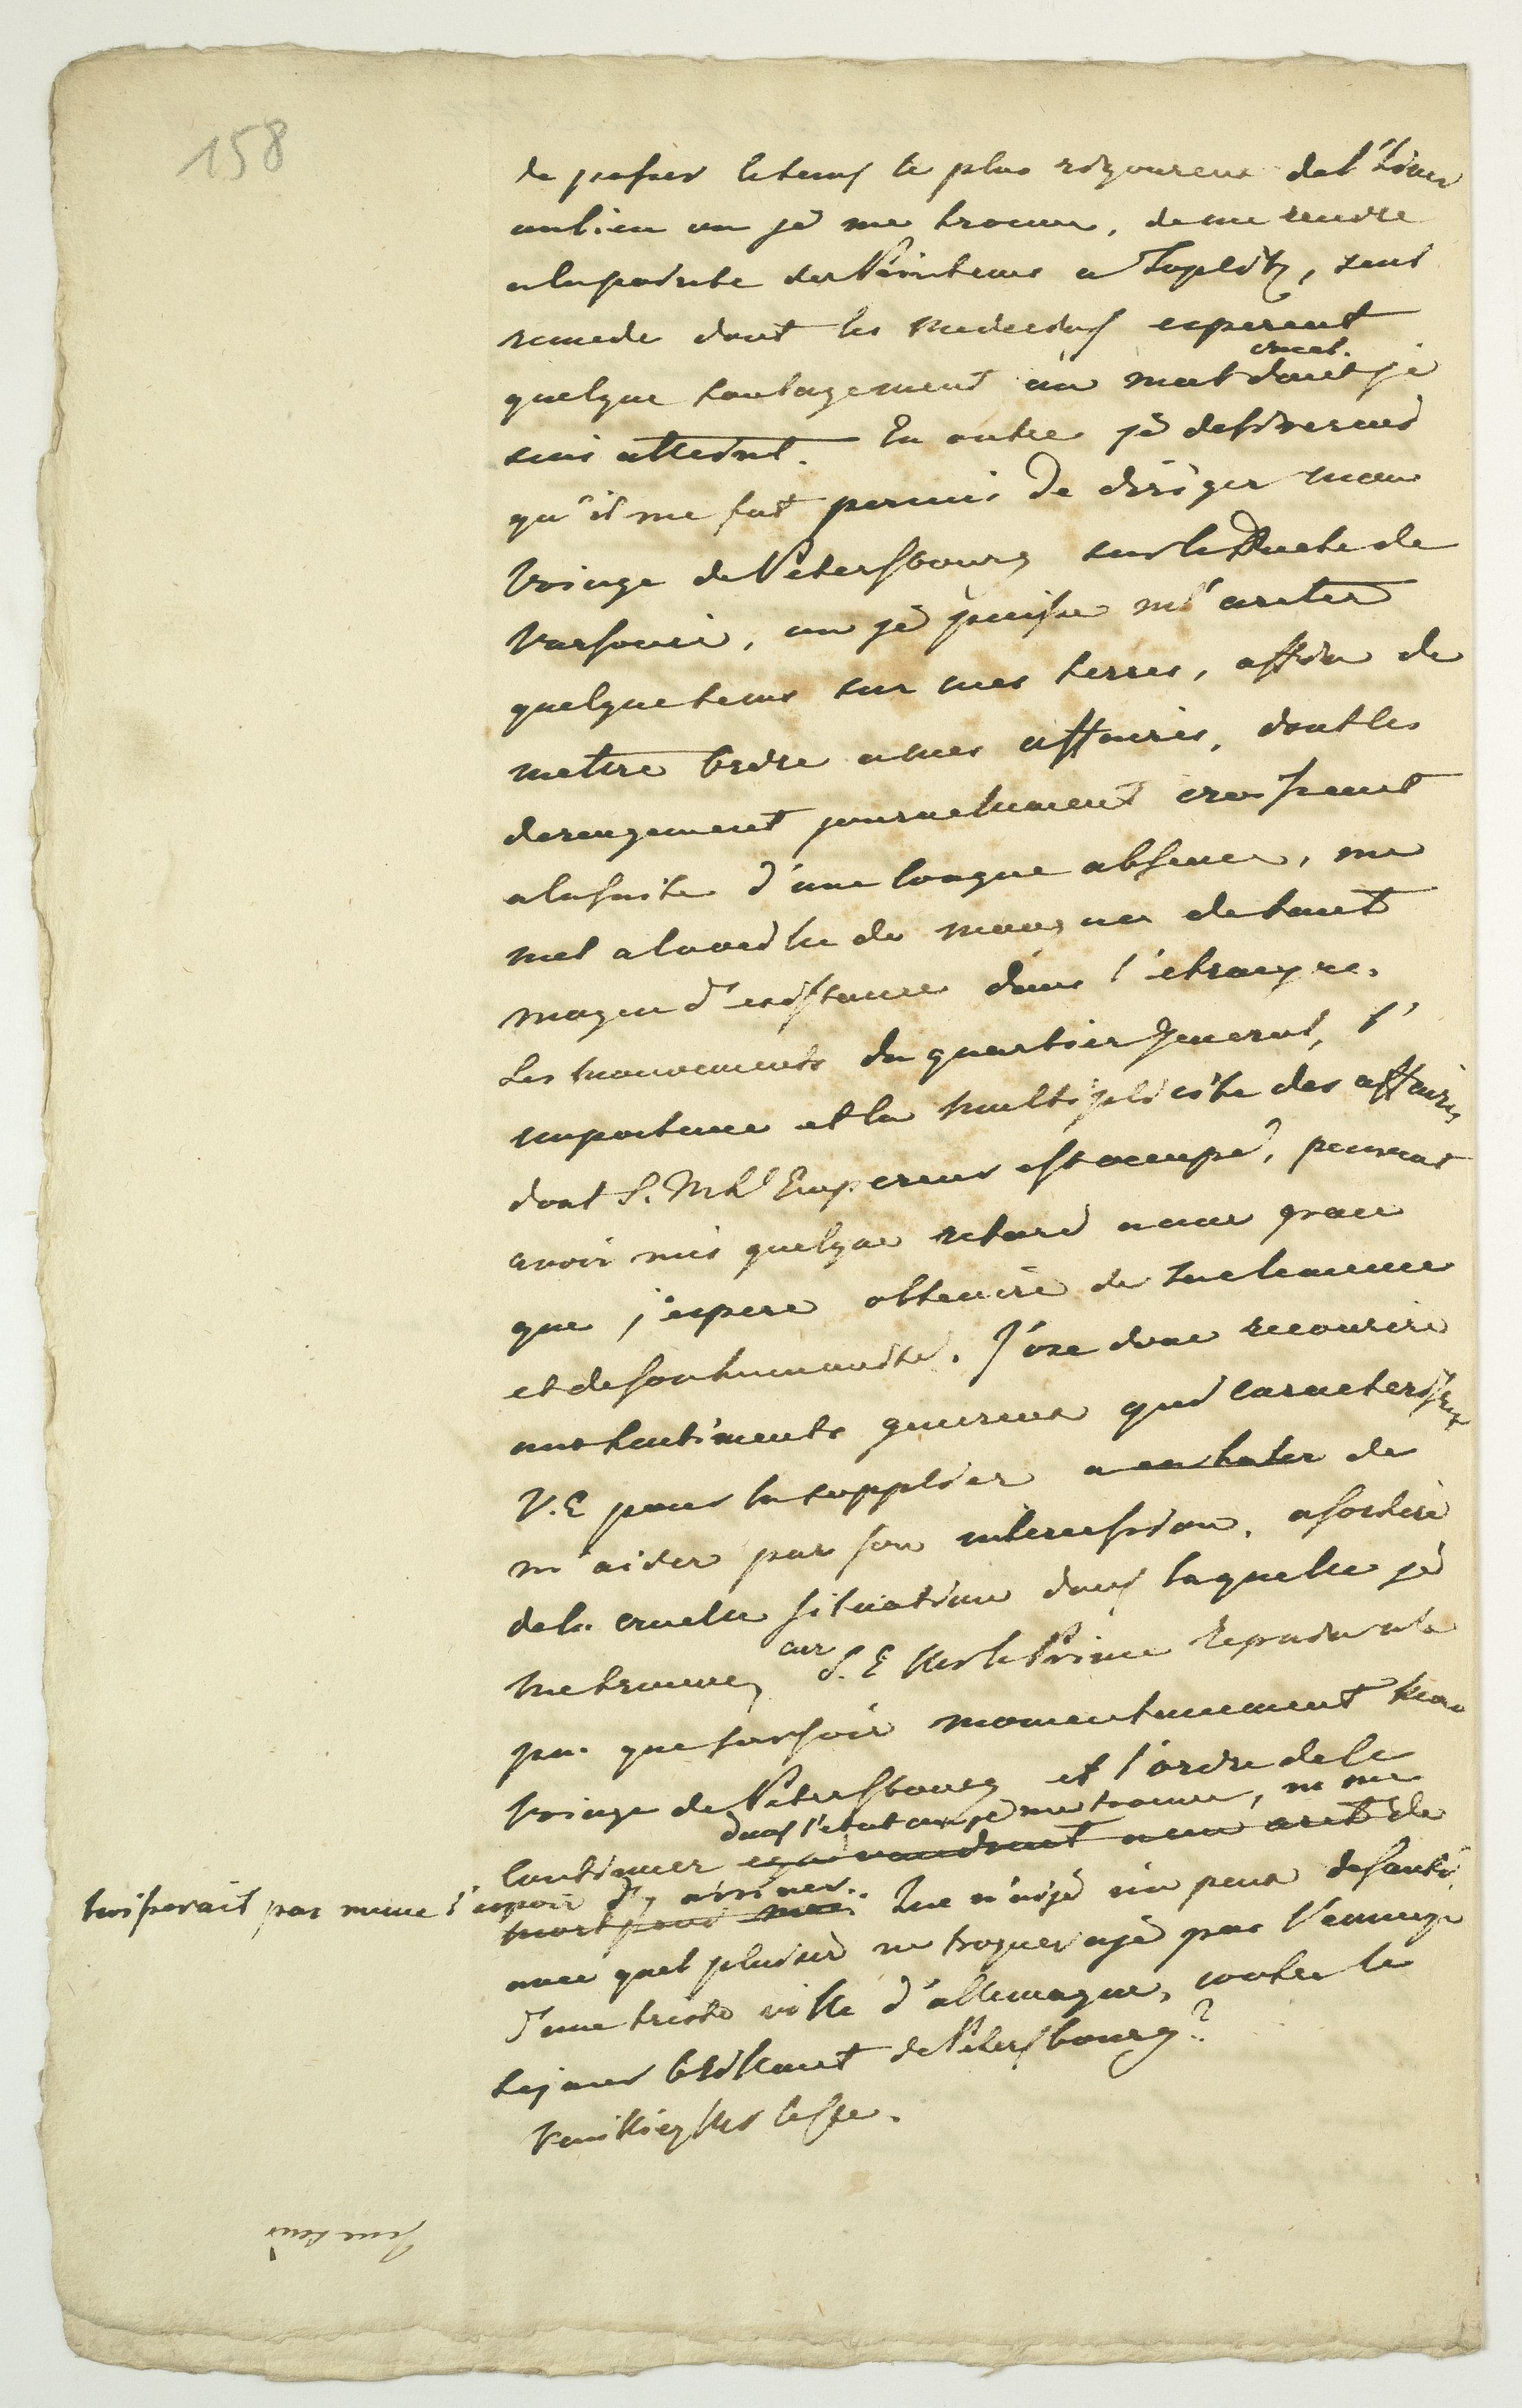 158
de passer le tems le plus rigoureux de l'hiver
au lieu ou je me trouve, de me rendre
a la pointe du Printems a Toplitz, seul
remede dont les medecins esperent
quelque soulagement au mal cruel dont je
suis atteint. En outre je desirerais
qu'il me fut permis de diriger mon
voiage de Petersbourg sur le Duché de
Varsovie, ou je puisse m'areter
quelque tems sur mes terres, affin de
metre ordre a mes affaires, dont les
derengement journelement croissant
a la suite d'une longue absence, me
met a la veille de manquer de tout
moyen d'existance dans l'etrangre.
Les mouvements du quartier general, l'
importance et la multiplicité des affaires
dont S. M. l'Empereur est occupé, peuvent
avoir mis quelque retard a une grace
que j'espere obtenire de sa clemence
et de son humanité. J'ose donc recourire
aux sentiments genereux qui caracterisent
V. E pour la supplier a en hater de
m'aider par son intercession, a sortire
de la cruelle situation dans laquelle je
me trouve, car S. E Mr le Prince Repnin n'a
pu que sursoir momentanement mon
voiage de Petersbourg et l'ordre de le
continuer equivaudrait a un aret de
dans l'etat ou je me trouve, ne me
laisserait pas meme l'espoir d'y arriver.
mort pour moi. Que n'ai je un peux de santé,
avec quel plaisir ne troquerai je pas l'ennuye
d'une triste ville d'allemagne, contre le
sejour brillant de Petersbourg?
Veuilliez Mr le